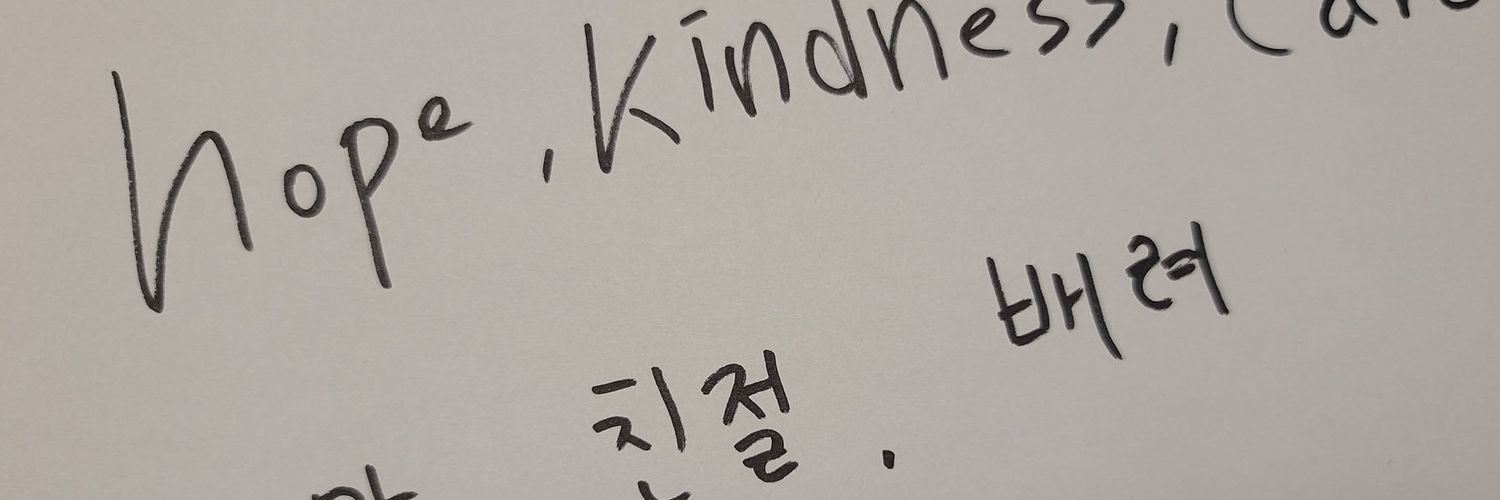 hope, kindness,
친절. 배려